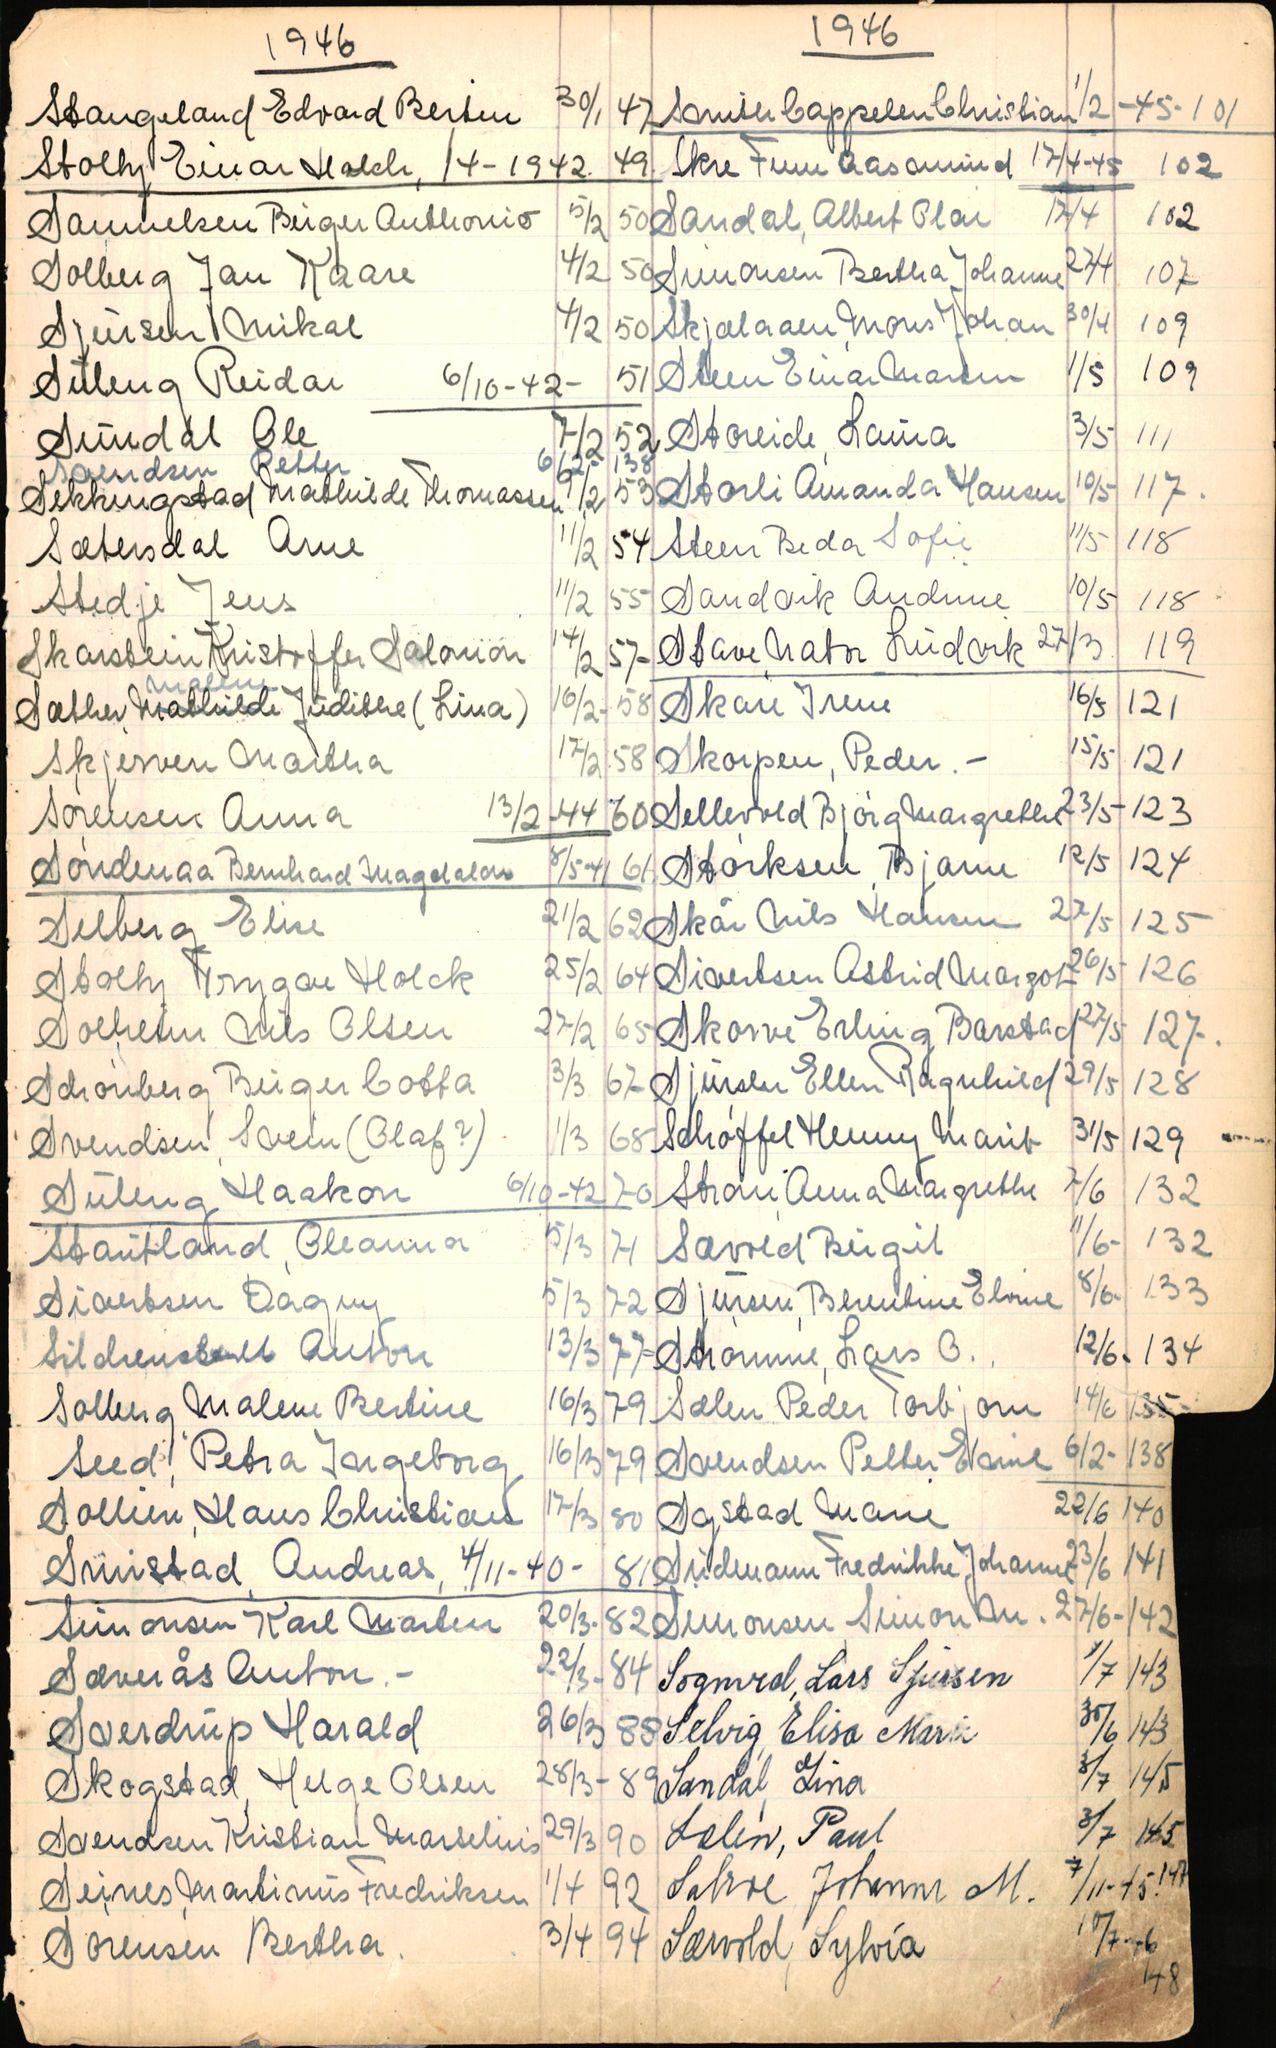 1946
Stangeland Edvard Bertin 30/1 47
Stoltz Einar Holch, /4-1942. 49
Samuelsen Birger Anthonio 5/2 50
Solberg Jan Kaare 4/2 50
Sjursen Mikal 4/2 50
Süleng Reidar 6/10-42- 51
Sundal Ole 7/2 52
Svendsen Petter 6/2- 138
Sekkingstad Mathilde Thomassen 9/2 53
Sætersdal Arne 11/2 54
Stedje Jens 11/2 55
Skarstein Kristoffer Salomon 14/2 57-
Malene
Sæther Mathilde Judithe (Lina) 16/2- 58
Skjerven Martha 17/2 58
Sörensen Anna 13/2-44 60
Söndenaa Bernhard Magdalon 8/5-41 61
Selberg Elise 21/2 62
Stoltz Trygve Holck 25/2 64
Solheim Nils Olsen 27/2 65
Schönberg Birger Cotta 3/3 67-
Svendsen, Svein (Olaf?) 1/3 68
Süleng Haakon 6/10-42 70
Stautland, Oleanna 5/3 71
Sivertsen Dagny 5/3 72
Anton 13/3 77-
Solberg Malene Bertine 16/3 79
Seed, Petra Ingeborg 16/3 79
Sollien, Hans Christian 17/3 80
Smistad, Andreas, 4/11-40- 81
Simonsen Karl Martin 20/3- 82
Sæverås Anton.- 22/3- 84
Sverdrup Harald 26/3 88
Skogstad, Helge Olsen 28/3- 89
Svendsen Kristian Marselius 29/3 90
Seines, Martinus Fredriksen 1/4 92
Sörensen Bertha. 3/4 94
1946
Smith Cappelen Christian 1/2 -45- 101
Skre Finn Aasmund 17/4-45 102
Sandal, Albert Olai 17/4 102
Simonsen Bertha Johanne 27/4 107
Skjelaaen, Mons Johan 30/4 109
Steen Einar Martin 1/5 109
Storeide, Laura 3/5 111
Storli Amanda Hansen 10/5 117.
Steen Beda Sofie 11/5 118
Sandvik Andrine 10/5 118
Stave, Nator Ludvik 27/3 119
Skare Irene 16/5 121
Skorpen, Peder.- 15/5 121
Sellevold Björg Margrethe 23/5- 123
Störksen, Bjarne 12/5 124
Skår Nils Hansen 27/5 125
Sivertsen Astrid Margot 26/5 126
Skorve Erling Barstad 27/5 127-.
Sjursen Ellen Ragnhild 29/5 128
Schöffel Henny Marit 31/5 129
Anna Margrethe 7/6 132
Sævold Birgit 11/6- 132
Sjursen, Berentine Elvine 8/6- 133
Strömme, Lars O.. 12/6- 134
Sælen Peder Torbjörn 14/6 135-
Svendsen Petter Emil 6/2- 138
Sygstad Marie 22/6 140
Südmann Fredrikke Johanne 23/6 141
Simonsen Simon M. 27/6- 142
Lars Sjursen 1/7 143
Selvig Elisa Marie 30/6 143
Sandal, Lina 3/7 145
Sælen, Paul 3/7 145
Johanne M. 7/11-45. 147
Sævold, Sylvia 10/7-46
148